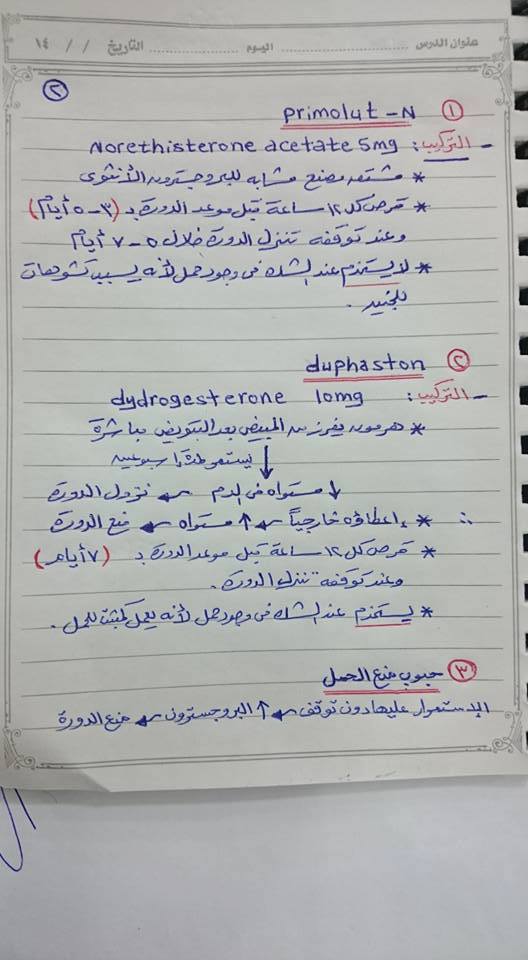 عنوان الدرس ........ اليوم ........ التاريخ / / ١٤
٢
① Primolut - N
- التركيب : Norethisterone acetate 5mg
* مشتقه مصنع مشابه للبروجسترون الأنثوى
* قرص كل ١٢ ساعة قبل موعد الدورة بـ (٣ - ٥ أيام)
وعند توقفه تنزل الدورة خلال ٥ - ٧ أيام
* لا يستخدم عند الشك فى وجود حمل لأنه يسبب تشوهات
للجنين .
② duphaston
- التركيب : dydrogesterone 10mg
* هرمون يفرز من المبيض بعد التبويض مباشرة
↓ يستمر لمدة أسبوعين
↓ مستواه فى الدم ← نزول الدورة
∴ * إعطاؤه خارجياً ← ↑ مستواه ← منع الدورة
* قرص كل ١٢ ساعة قبل موعد الدورة بـ (٧ أيام)
وعند توقفه تنزل الدورة .
* يستخدم عند الشك فى وجود حمل لأنه يعمل كمثبت للحمل .
③ حبوب منع الحمل
الإستمرار عليها دون توقف ← ↑ البروجسترون ← منع الدورة